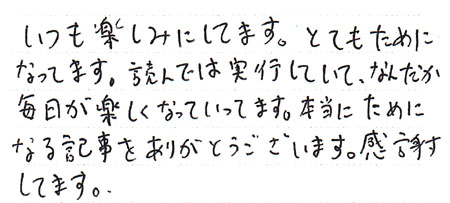 いつも楽しみにしてます。とてもために
なってます。読んでは実行していて、なんだか
毎日が楽しくなっていってます。本当にために
なる記事をありがとうございます。感謝
してます。